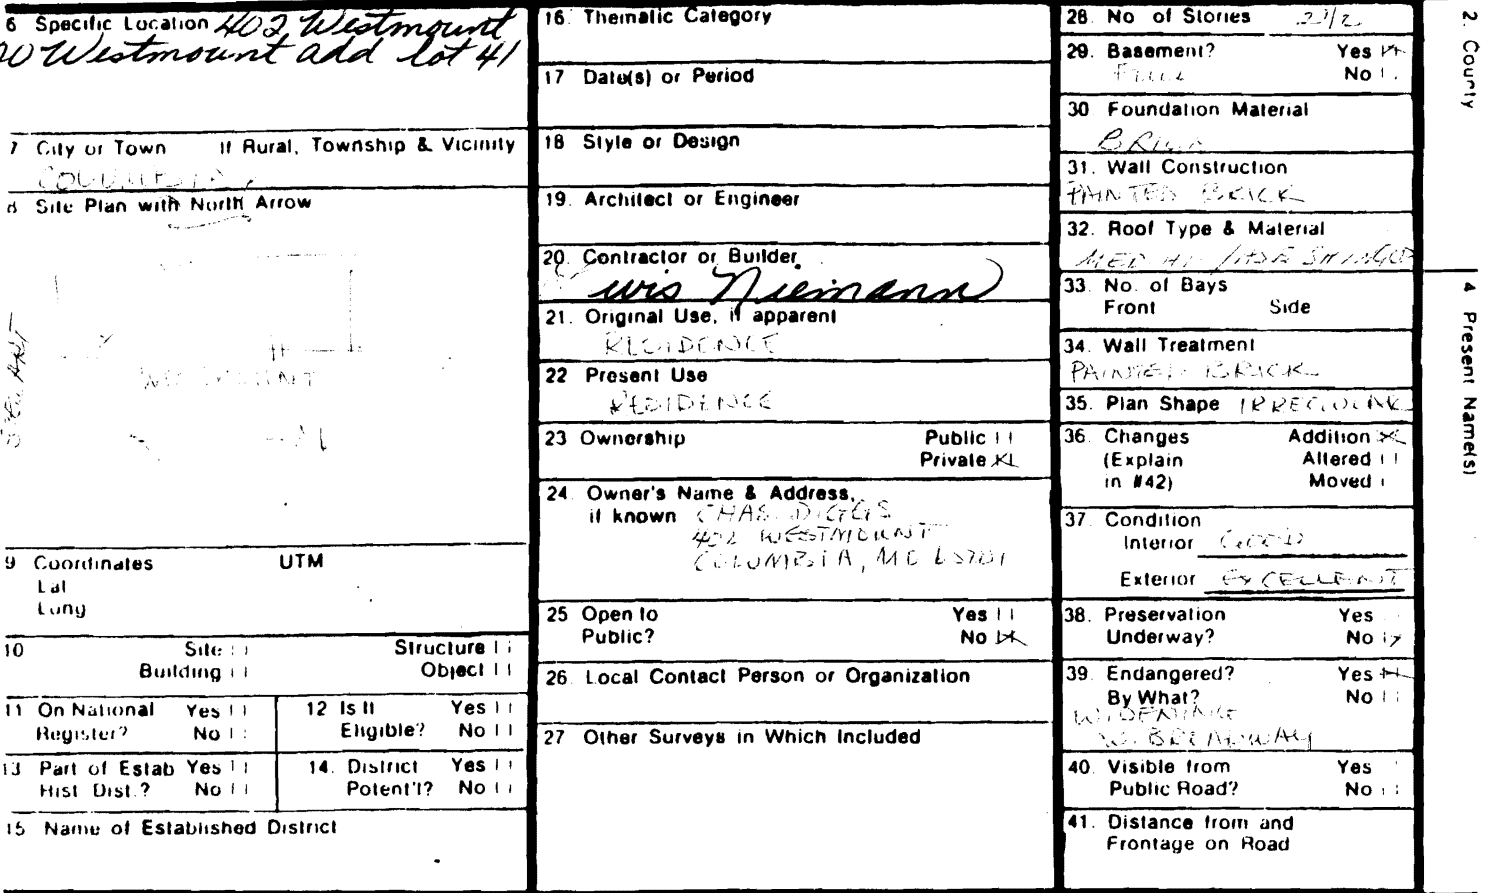 6 Specific Location 402 Westmount
Westmount add lot 41
7 City or Town If Rural, Township & Vicinity
COLUMBIA,
8 Site Plan with North Arrow
WESTMOUNT
9 Coordinates UTM
Lat
Long
10 Site Structure
Building Object
11 On National Register? Yes No
12 Is It Eligible? Yes No
13 Part of Estab Hist Dist.? Yes No
14. District Potent'l? Yes No
15 Name of Established District
16. Thematic Category
17 Date(s) or Period
18 Style or Design
19. Architect or Engineer
20. Contractor or Builder
Niemann
21. Original Use, if apparent
RESIDENCE
22 Present Use
RESIDENCE
23 Ownership Public
Private
24. Owner's Name & Address,
if known CHAS. DIGGS
402 WESTMOUNT
COLUMBIA, MO 65201
25 Open to Yes
Public? No
26. Local Contact Person or Organization
27 Other Surveys in Which Included
28. No of Stories 2 1/2
29. Basement? Yes
FULL No
30 Foundation Material
BRICK
31. Wall Construction
PAINTED BRICK
32. Roof Type & Material
MED HI / ASP SHINGLE
33. No. of Bays
Front Side
34. Wall Treatment
PAINTED BRICK
35. Plan Shape IRREGULAR
36. Changes Addition
(Explain Altered
in #42) Moved
37. Condition
Interior GOOD
Exterior EXCELLENT
38. Preservation Yes
Underway? No
39. Endangered? Yes
By What? No
WIDENING
W. BROADWAY
40. Visible from Yes
Public Road? No
41. Distance from and
Frontage on Road
2. County
4 Present Name(s)